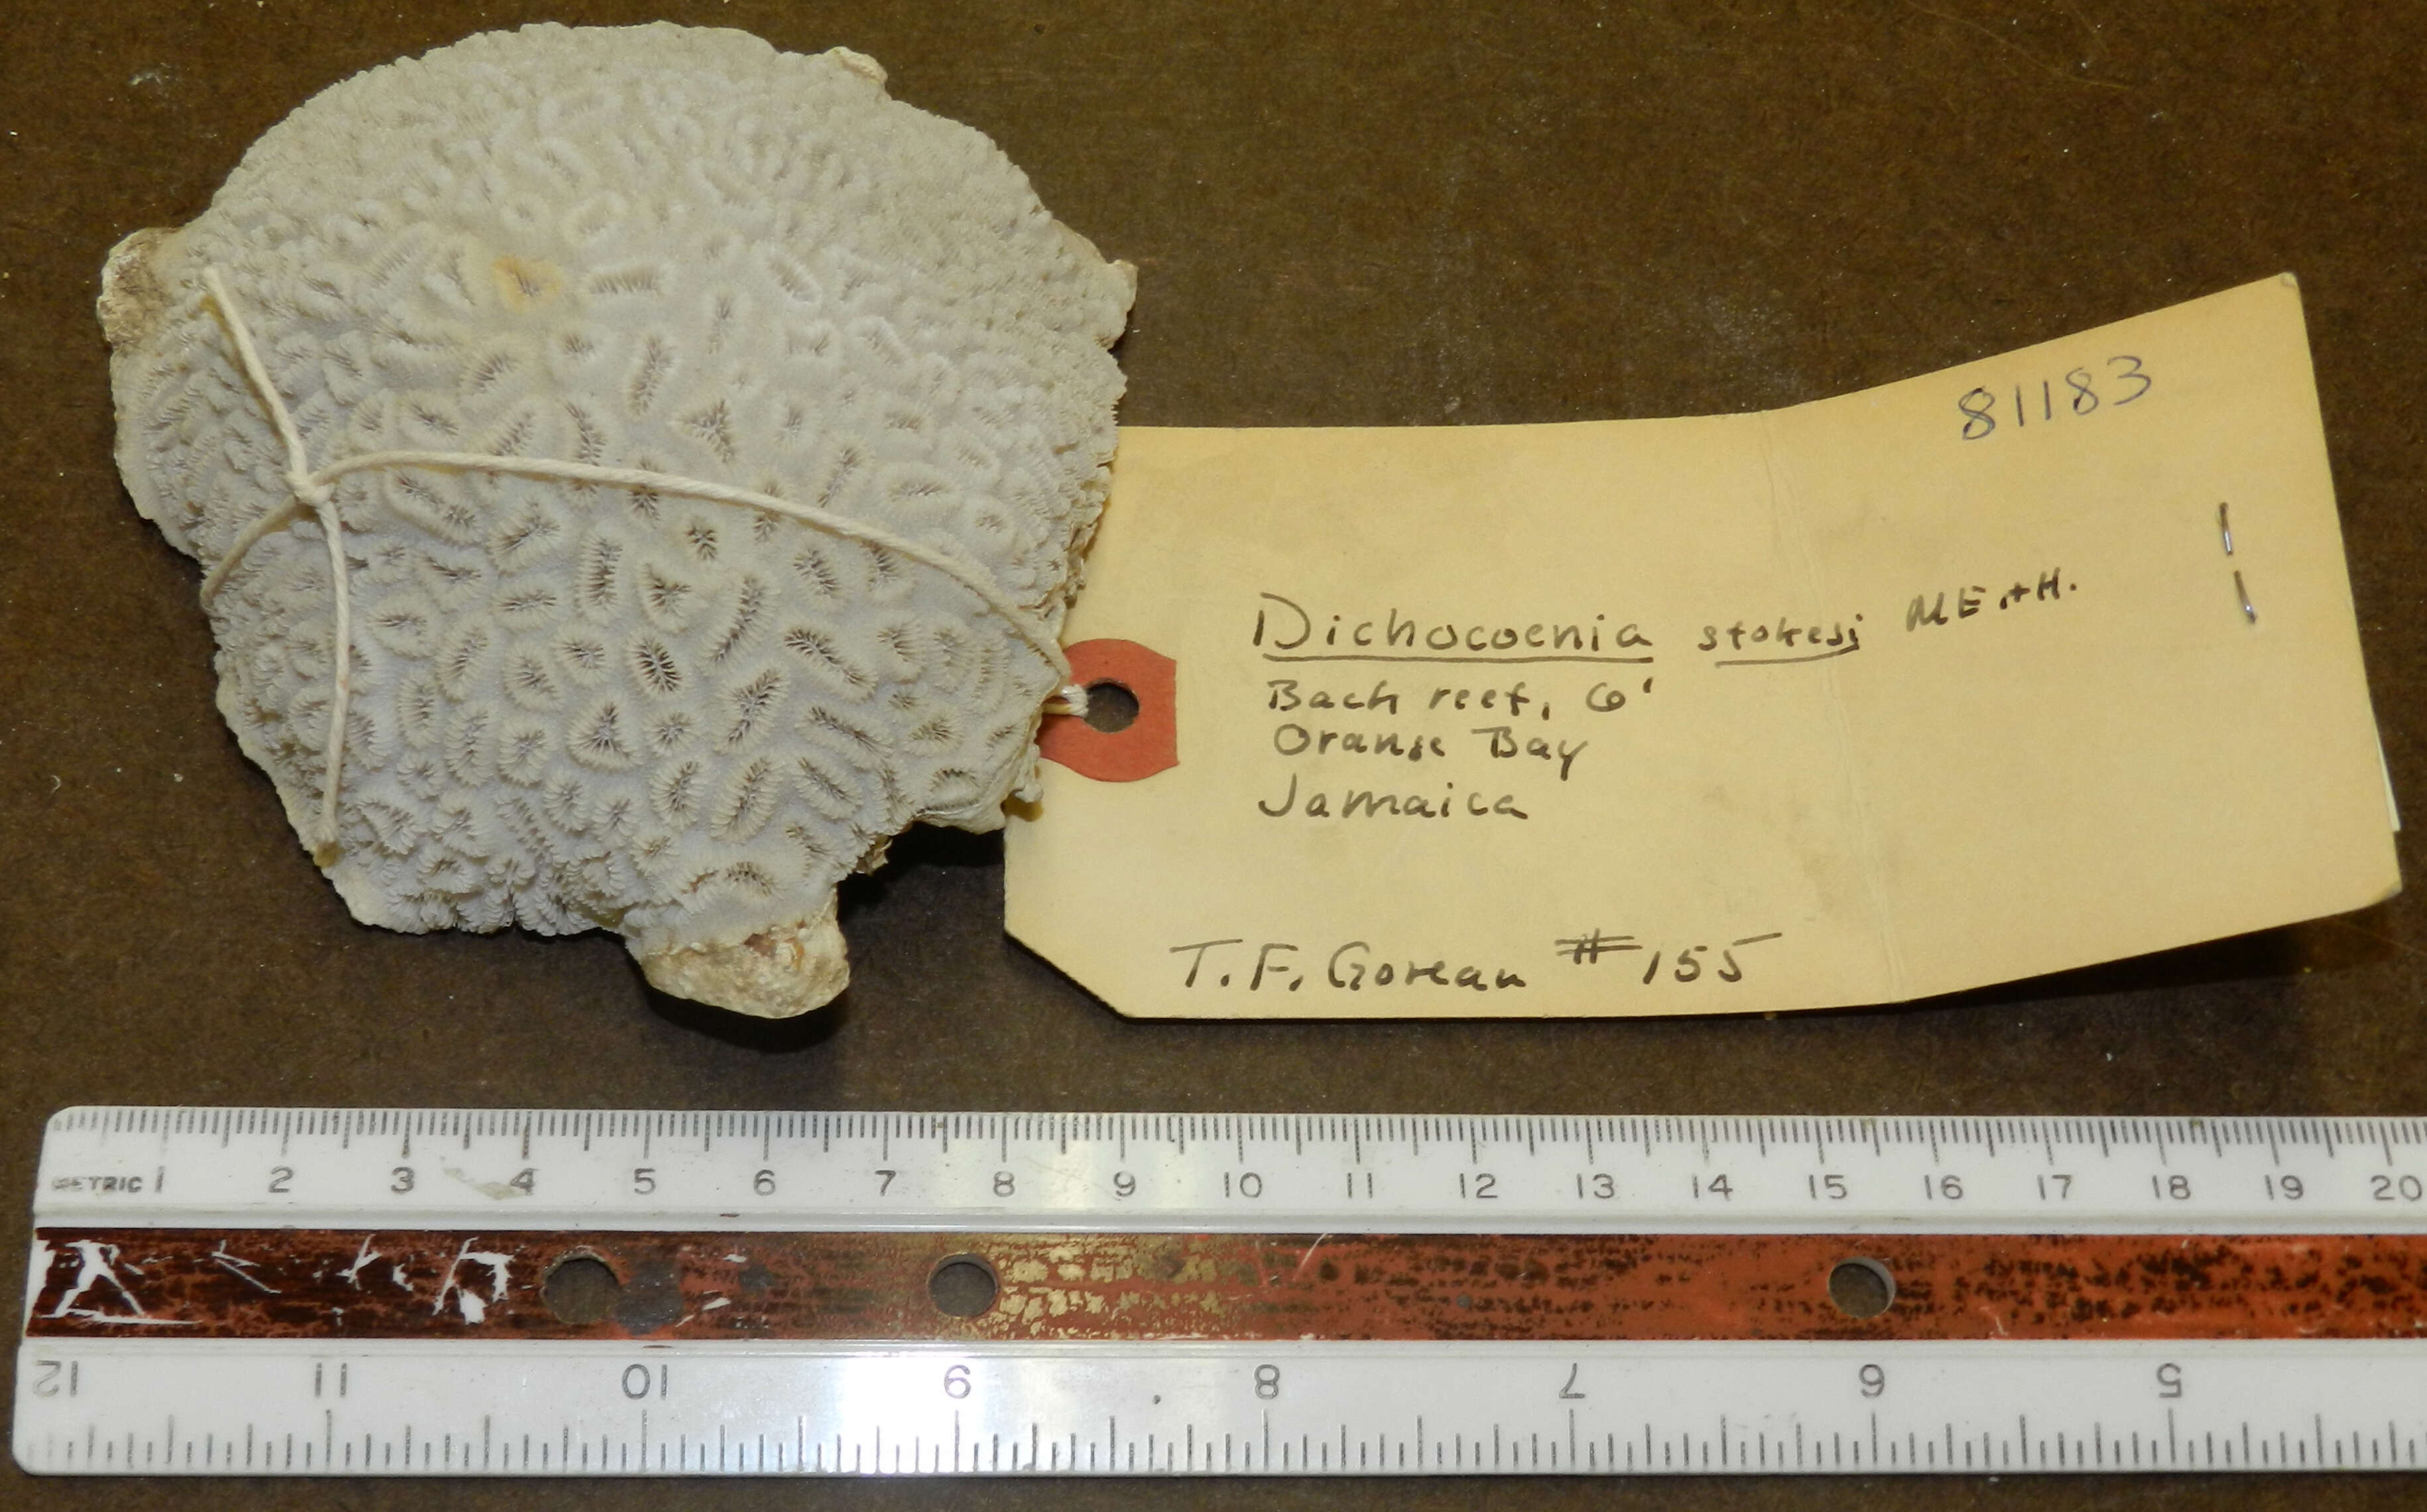 81183
Dichocoenia stokesi ME.+H.
Back reef, 6'
Orange Bay
Jamaica
T.F. Goreau #155
METRIC 1 2 3 4 5 6 7 8 9 10 11 12 13 14 15 16 17 18 19 20
12 11 10 9 8 7 6 5